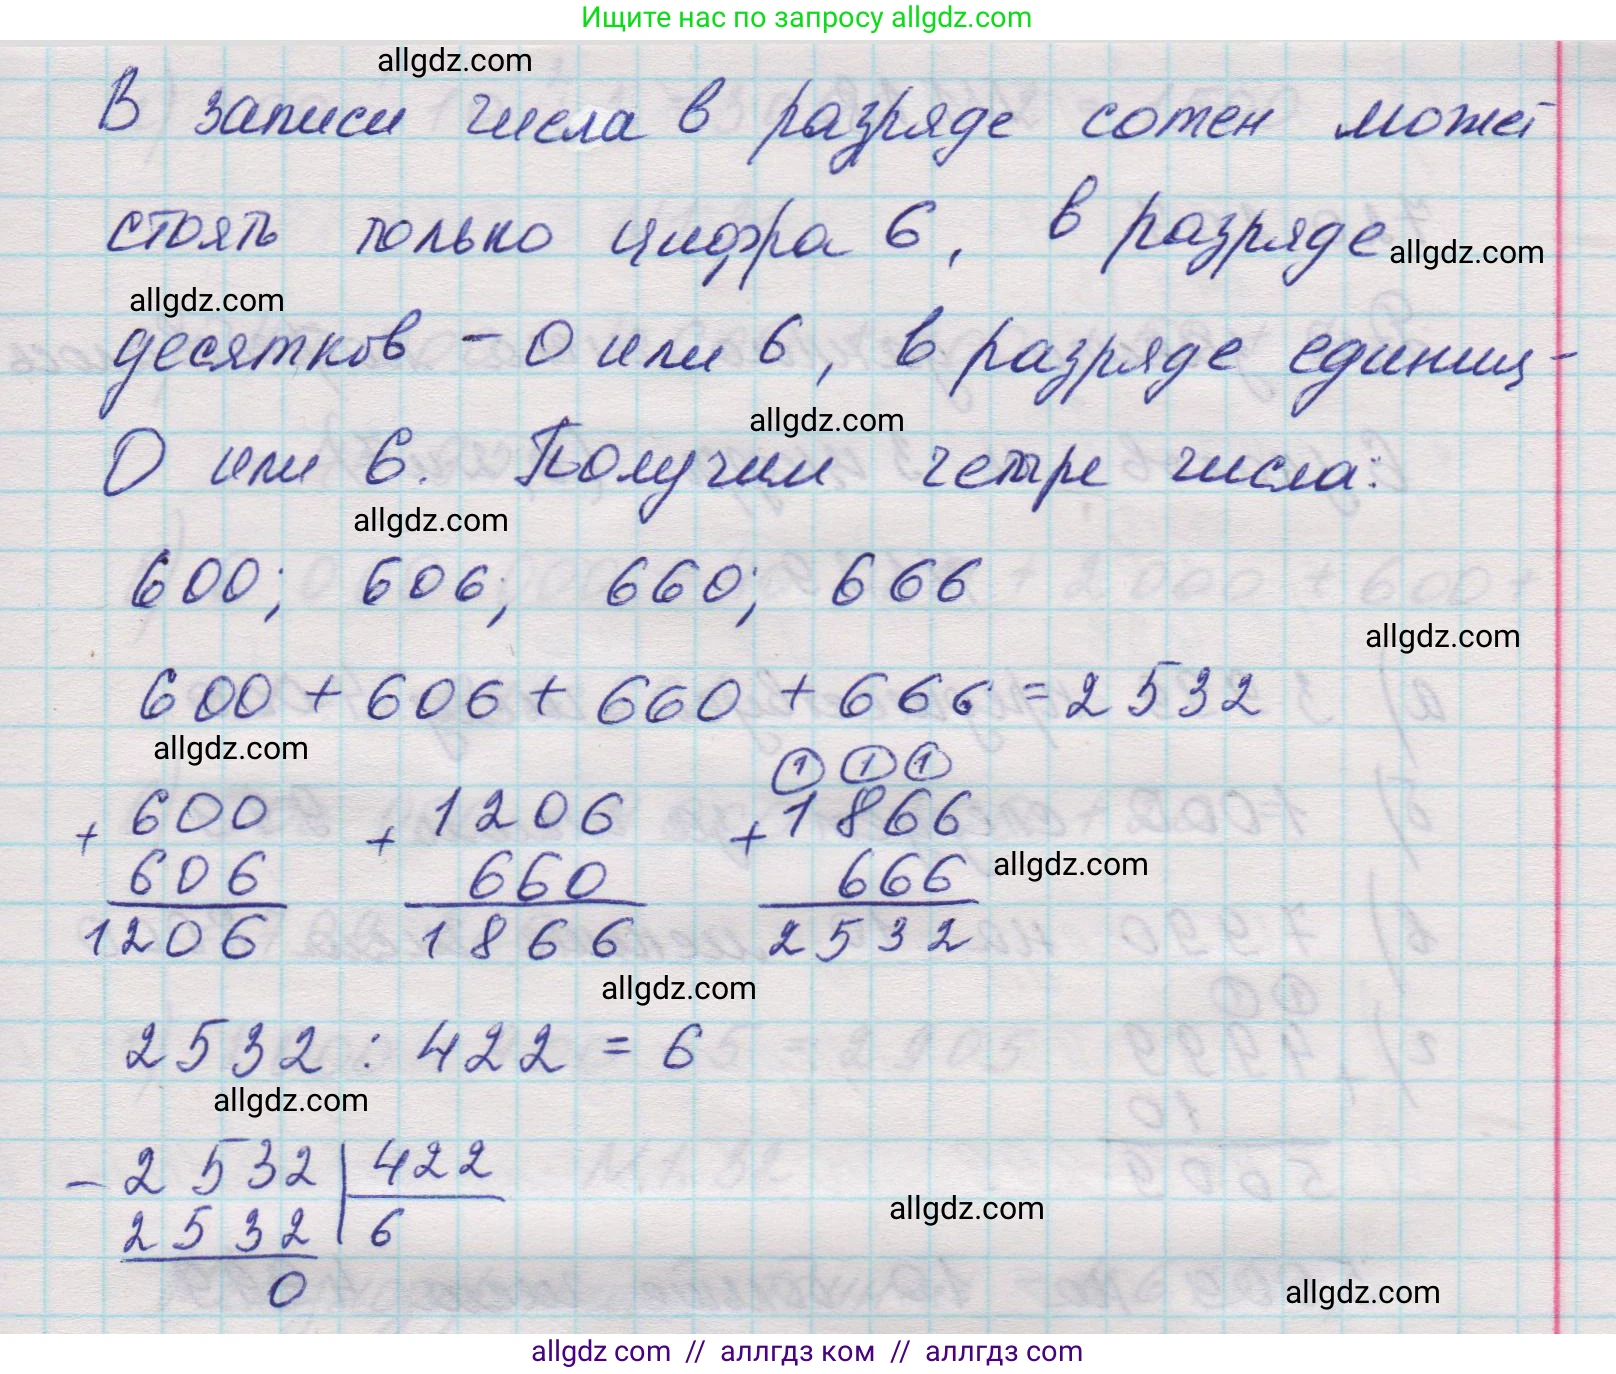 Ищите нас по запросу allgdz.com
allgdz.com
В записи числа в разряде сотен может
стоять только цифра 6, в разряде
allgdz.com
allgdz.com
десятков - 0 или 6, в разряде единиц -
allgdz.com
0 или 6. Получим четыре числа:
allgdz.com
600; 606; 660; 666
allgdz.com
600 + 606 + 660 + 666 = 2532
allgdz.com
1 1 1
+ 600 + 1206 + 1866
606 660 666 allgdz.com
1206 1866 2532
allgdz.com
2532 : 422 = 6
allgdz.com
- 2532 | 422
2532 | 6
allgdz.com
0
allgdz.com
allgdz com // аллгдз ком // аллгдз com